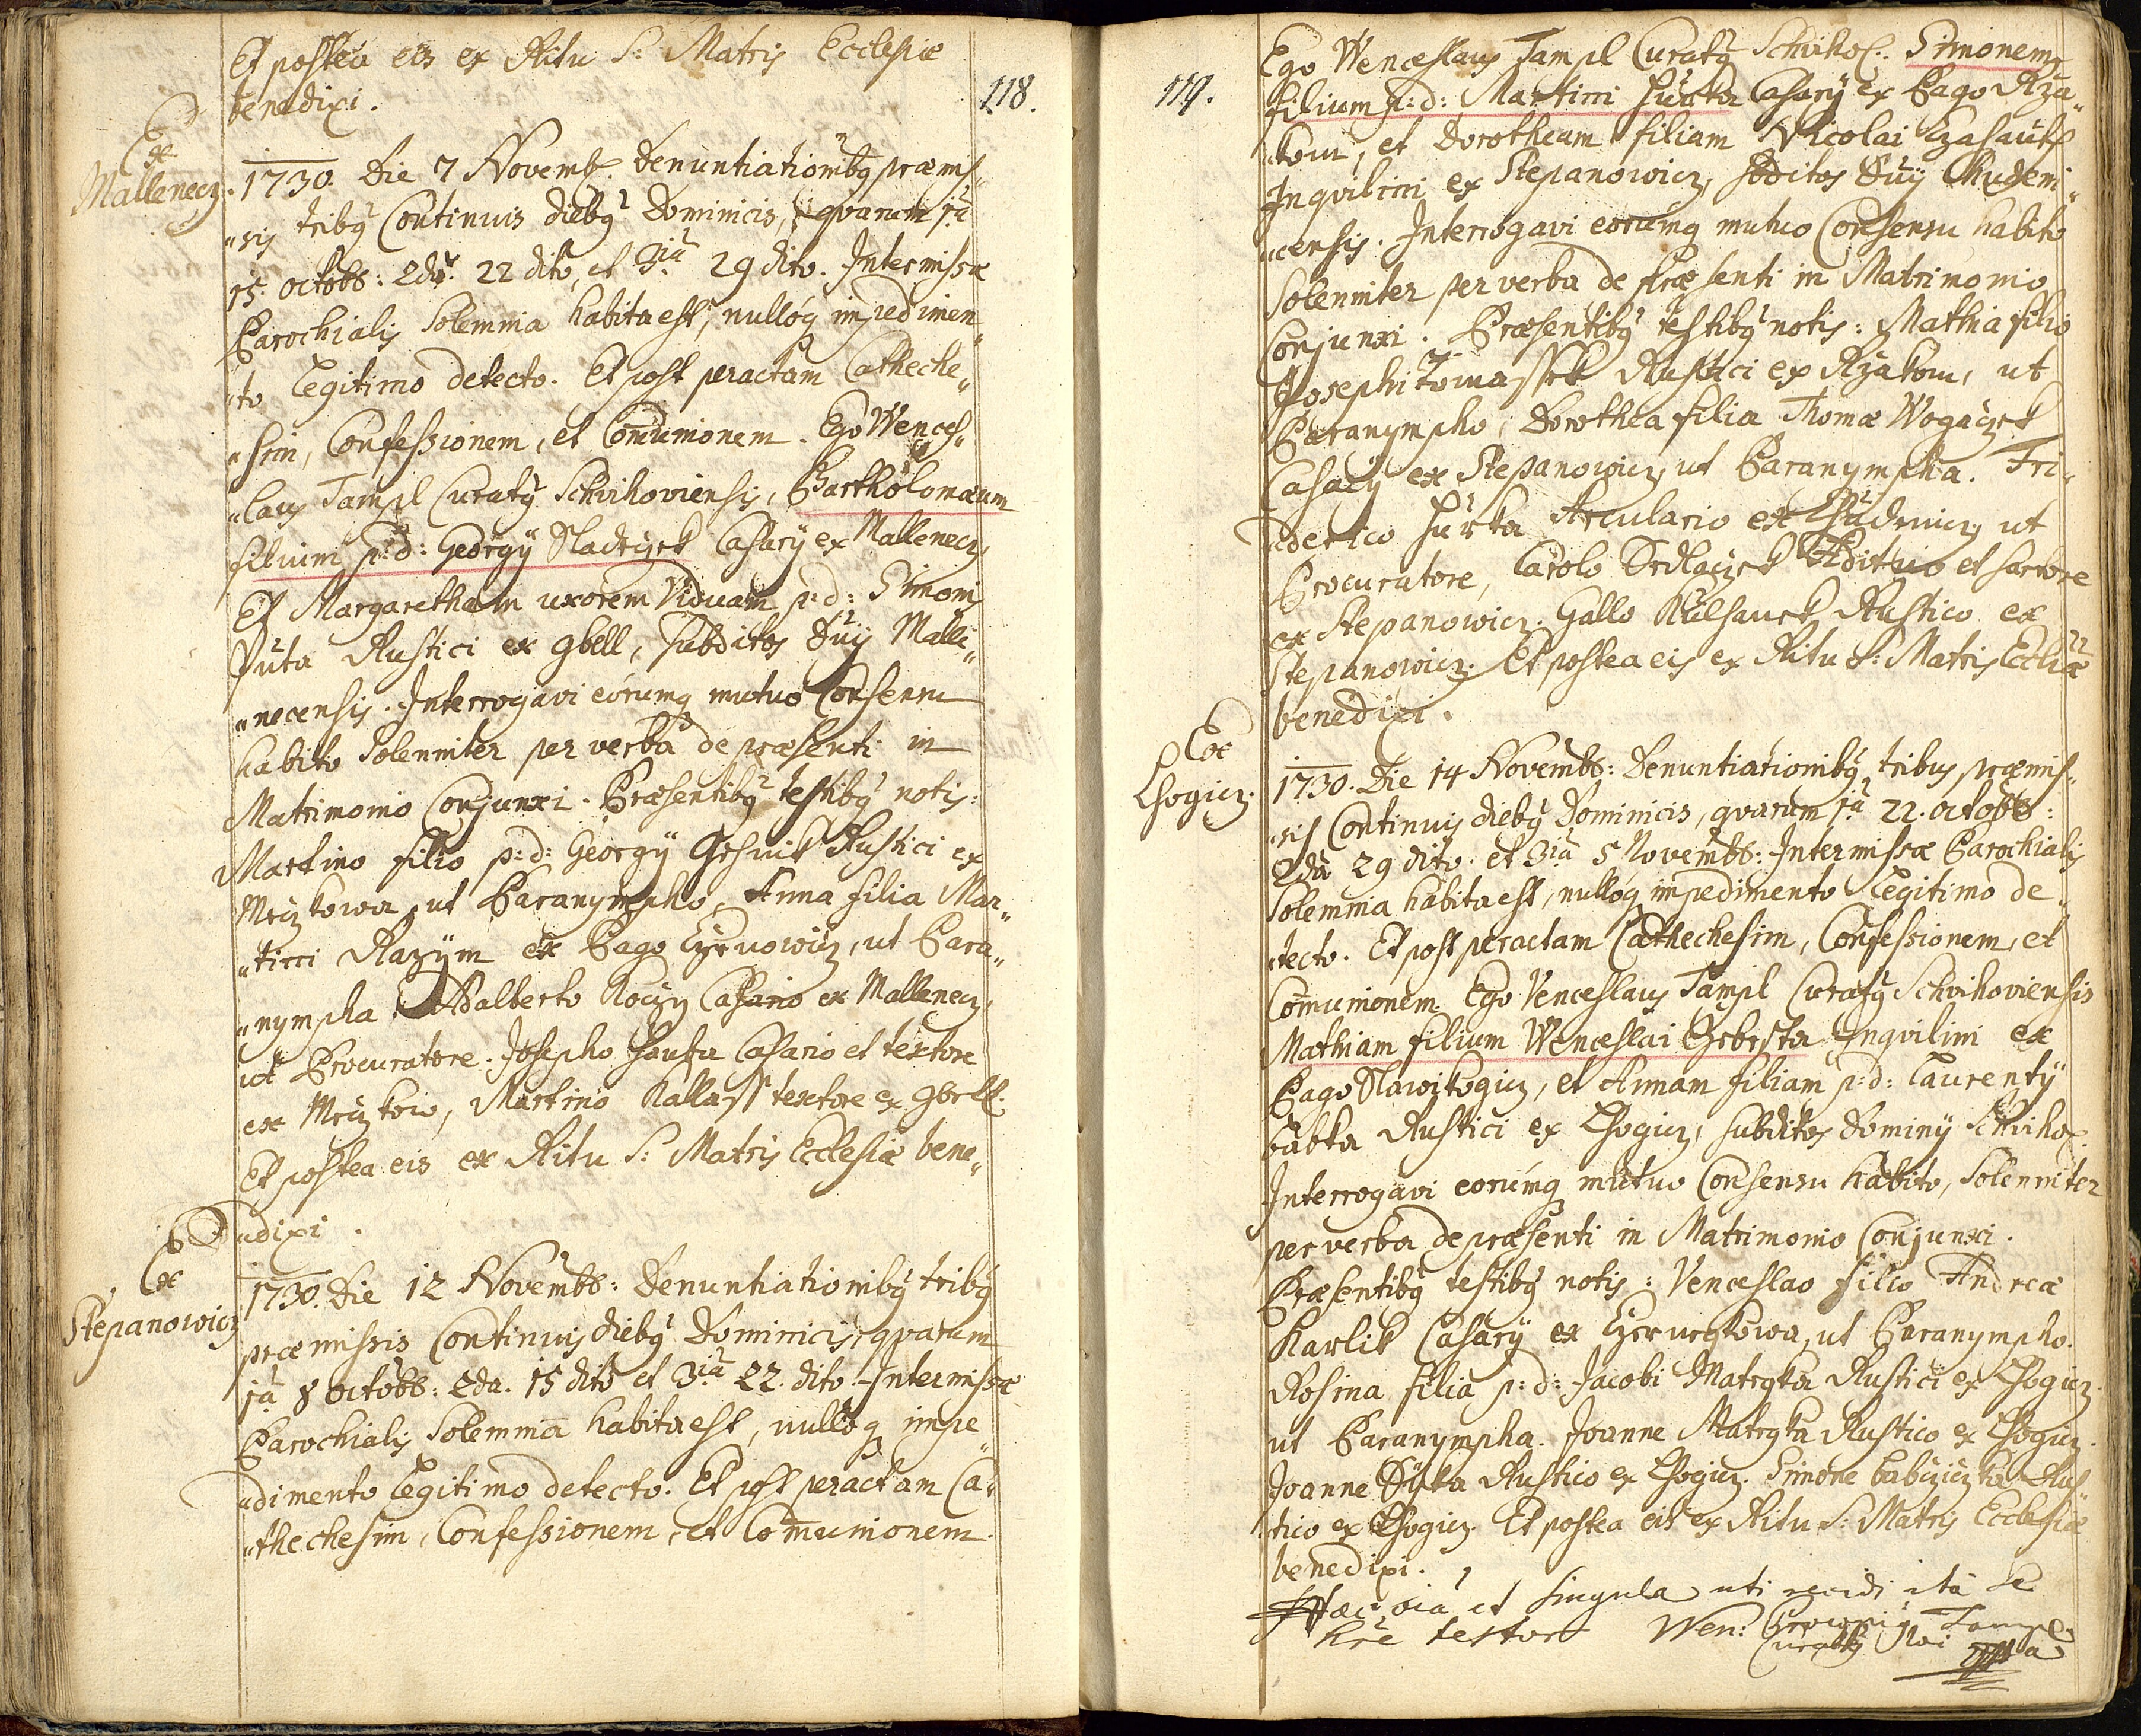 Et postea eis ex Ritu S: Matris Ecclesiæ
benedixi.
118.
Ex
Mallenecz.
1730. Die 7 Novemb. Denuntiationibq præmis„
„sis tribq Continuis diebq Dominicis, qvarum 1a
15. octobs: 2da. 22 dito, et 3ia 29 dito. Intermissæ
Parochialis Solemnia habita est, nulloq impedimen„
„to Legitimo detecto. Et post peractam Catheche„
„sim, Confessionem, et Comunionem. Ego Wences„
„laus Tampl Curatq Schvihoviensis, Bartholomæum
filium p:d: Georgÿ Sladeczek Casarÿ ex Mallenecz,
Et Margaretham uxorem Viduam p:d: Simonis
Duta Rustici ex gbell, subditos Duÿ Malle„
„necensis. Interrogavi eorumq mutuo Consensu
habito Solenniter per verba de præsenti in
Matrimonio Conjunxi. Præsentibq testibq notis:
Martino filio p:d: Georgÿ Rustici ex
Mczkowa, ut Paranympho, Anna filia Mar„
„tini Razÿm ex Pago, ut Para„
„nympha. Adalberto Koczy Casario ex Mallenecz,
ut Procuratore. Josepho Casario et textore
ex, Martino Kallass textore ex gbell.
Et postea eis ex Ritu S: Matris Ecclesiæ bene„
„dixi.
Ex
Stepanowicz
1730. Die 12 Novembs: Denuntiationibq tribq
præmissis Continuis diebq Dominicis, qvarum
1a 8 octobs: 2da. 15 dito et 3ia 22. dito. Intermissæ
Parochialis Solemnia habita est, nulloq impe„
„dimento Legitimo detecto. Et post peractam Ca„
„thechesim, Confessionem, et Comunionem.
119.
Ego Wenceslaus Tampl Curatq Schviho: Simonem
filium p:d: Martini Hurka Casarÿ ex Pago Rza„
„kom, et Dorotheam filiam Nicolai
Inqvilini ex Stepanowicz, sbditos Duÿ Chudeni„
„censis. Interrogavi eorumq mutuo Consensu habito
Solenniter per verba de præsenti in Matrimonio
Conjunxi. Præsentibq testibq notis: Mathia filio
Josephi Tomassek Rustici ex Rzakom, ut
Paranympho, Dorothea filia Thomæ Wogaczek
Casarÿ ex Stepanowicz, ut Paranympha. Fri„
„derico Hurka Arculario ex Chudenicz, ut
Procuratore, Carolo Sedlaczek Ædituo et sartore
ex Stepanowicz. Gallo Rustico ex
Stepanowicz. Et postea eis ex Ritu S: Matris Eccliæ
benedixi.
Ex
Lhogicz.
1730. Die 14 Novembs: Denuntiationibq tribus præmis„
„sis Continuis diebq Dominicis, qvarum 1a 22. octobs:
2da 29 dito. et 3ia 5 Novembs: Intermissæ Parochialis
Solemnia habita est, nulloq impedimento Legitimo de„
„tecto. Et post peractam Cathechesim, Confessionem, et
Comunionem. Ego Venceslaus Tampl Curatq Schvihoviensis
Mathiam filium Wenceslai Inqvilini ex
Pago Slawikogicz, et Annam filiam p:d: Laurentÿ
Babka Rustici ex Lhogicz, subditos Dominÿ Schviho:
Interrogavi eorumq mutuo Consensu habito, Solenniter
per verba de præsenti in Matrimonio Conjunxi.
Præsentibq testibq notis: Venceslao filio Andreæ
Karlik Casarÿ ex, ut Paranympho.
Rosina filia p:d: Jacobi Mategka Rustici ex Lhogicz.
ut Paranympha. Joanne Mategka Rustico ex Lhogicz.
Joanne Duka Rustico ex Lhogicz. Simone Babczicka Rus„
„tico ex Lhogicz. Et postea eis ex Ritu S: Matris Ecclesiæ
benedixi.
Hæc oia et singula uti ita se
testor Wen: Tampl
Curatq